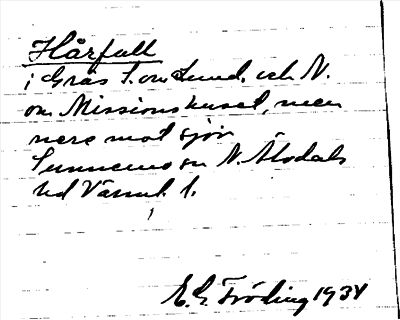 Hårfall
i Gräs S. om Sund. och N.
om Missionshuset, men
nere mot sjön
Sunnemo sn N. Älvdals
hd Värml. l.
E. G. Fröding 1934